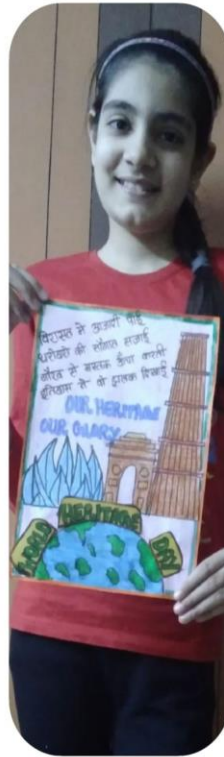 विरासत ने आजादी पाई
धरोहरों की सौगात सजाई
गौरव से मस्तक ऊँचा करती
इतिहास से वो झलक दिखाई
OUR HERITAGE
OUR GLORY
WORLD HERITAGE DAY